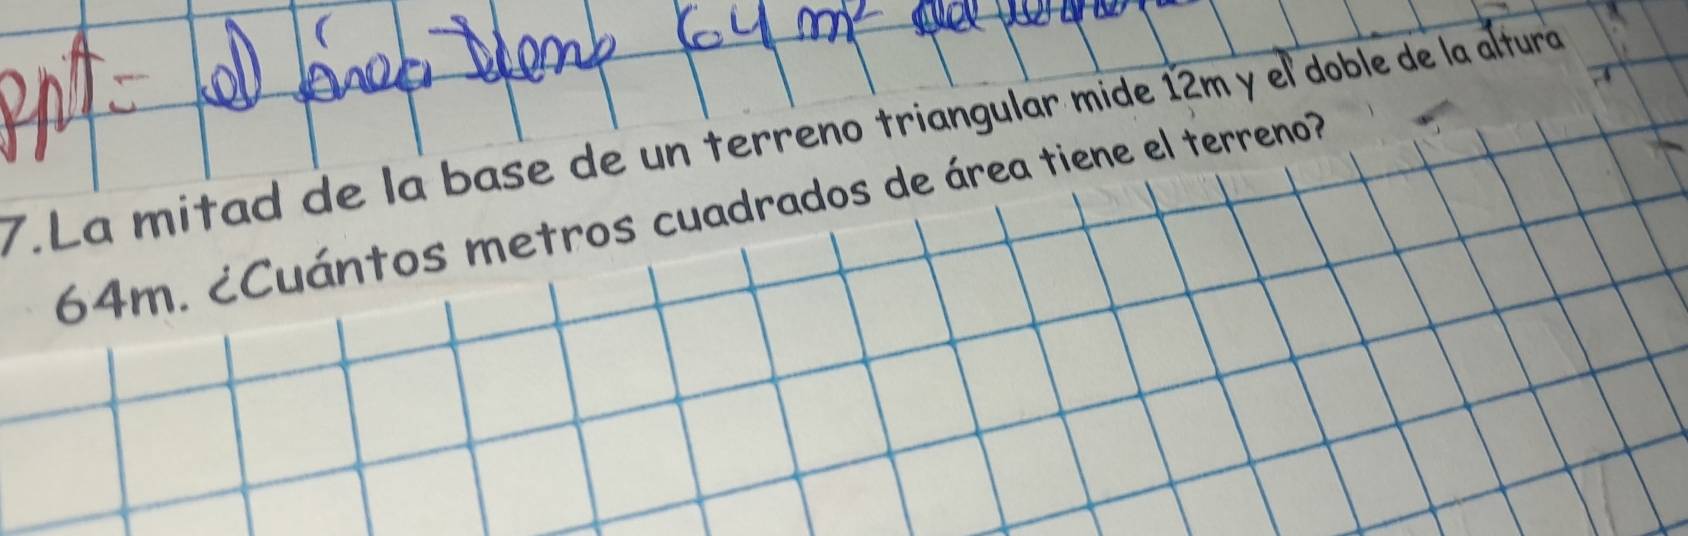 Rpt= el área tiene 64 m² del
7. La mitad de la base de un terreno triangular mide 12m y el doble de la altura
64m. ¿Cuántos metros cuadrados de área tiene el terreno?